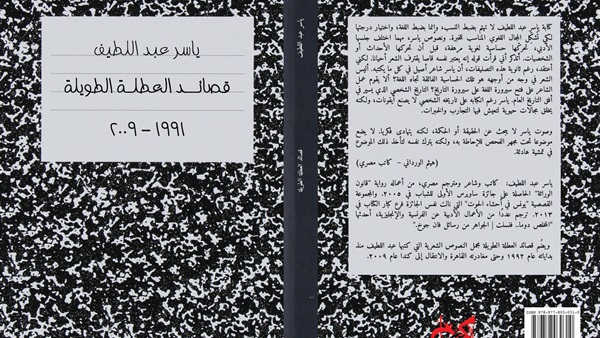 ياسر عبد اللطيف
قصائد العطلة الطويلة
١٩٩١ – ٢٠٠٩
ياسر عبد اللطيف
قصائد العطلة الطويلة
كتابة ياسر عبد اللطيف لا تهتم بضبط النسب، وإنما بضبط اللغة، واختيار درجتها
لكي تُشكِّل المجال اللغوي المناسب للخبرة. ونصوص ياسر، مهما اختلف جنسها
الأدبي، تحركها حساسية لغوية مرهفة، قبل أن تحركها الأحداث أو
الشخصيات. أتذكر أني قرأت قوله إنه يعتبر نفسه قاصا يقترف الشعر أحيانا. ولكني
أعتقد، رغم ثانوية هذه التصنيفات، أن ياسر شاعر أصيل في كل ما يكتبه. أليس
الشعر في وجه من أوجهه هو تلك الحساسية الفائقة تجاه اللغة؟ ألا يقوم عمل
الشاعر على فتح سيرورة اللغة على سيرورة التاريخ؟ التاريخ الشخصي الذي يسير في
أفق التاريخ العام. ياسر رغم انكبابه على تاريخه الشخصي لا يصنع أيقونات، ولكنه
يخلق مجالات حيوية تتعيش فيها التجارب والخبرات.
وصوت ياسر لا يبحث عن الحقيقة أو الحكمة، لكنه يتهادى فكريا. لا يضع
موضوعا تحت مجهر الفحص للإحاطة به، ولكنه يترك نفسه لتأخذ تلك الموضوع
في تمشية هادئة.
(هيثم الورداني – كاتب مصري)
ياسر عبد اللطيف: كاتب وشاعر ومترجم مصري، من أعماله رواية "قانون
الوراثة" الحاصلة على جائزة ساويرس الأولى للشباب في ٢٠٠٥. والمجموعة
القصصية "يونس في أحشاء الحوت" التي نالت نفس الجائزة فرع كبار الكتاب في
٢٠١٣. ترجم عددا من الأعمال الأدبية عن الفرنسية والإنجليزية، أحدثها
"المخلص دوما.. فنسنت | الجواهر من رسائل فان جوخ."
ويضم قصائد العطلة الطويلة مجمل النصوص الشعرية التي كتبها عبد اللطيف منذ
بداياته عام ١٩٩٢ وحتى مغادرته القاهرة والانتقال إلى كندا عام ٢٠٠٩.